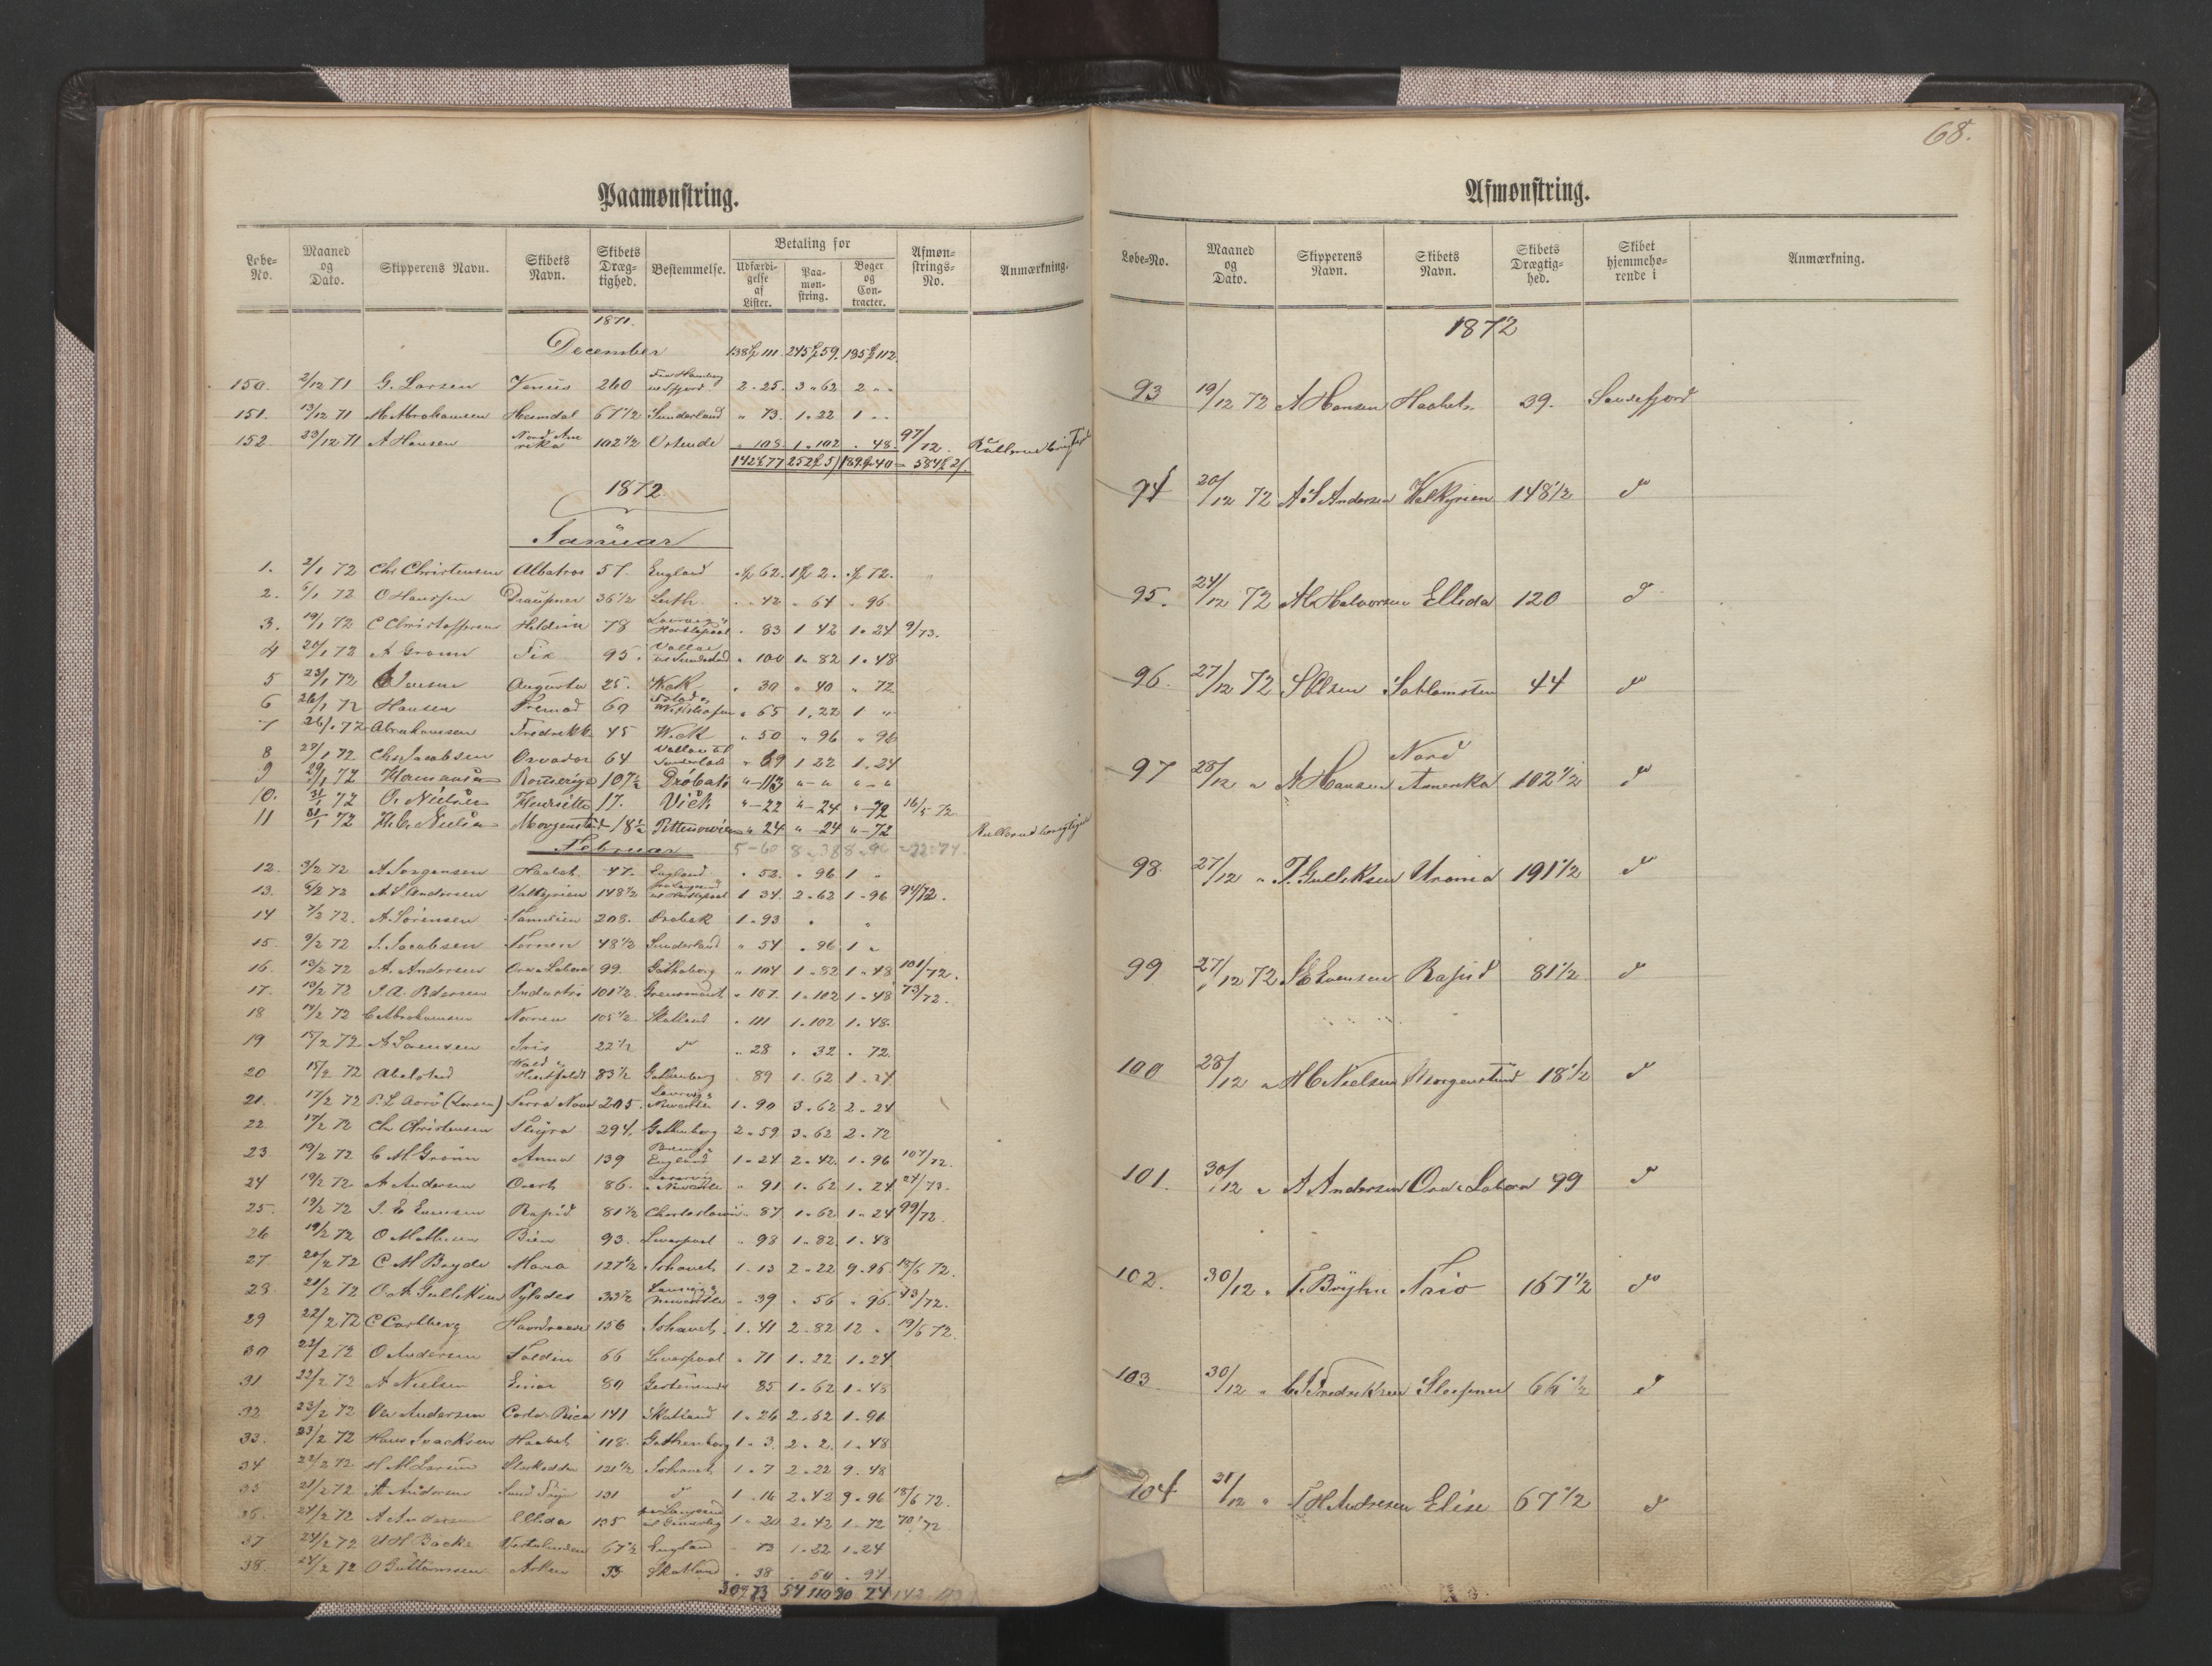 68.
Paamønstring.
Løbe-No. Maaned og Dato. Skipperens Navn. Skibets Navn. Skibets Drægtighed. Bestemmelse. Betaling for Udfærdigelse af Lister. Paamønstring. Bøger og Contracter. Afmønstrings-No. Anmærkning.
1871.
December 138 111. 245 59. 185 112.
150. 2/12 71 G. Larsen Venus 260 2 . 25. 3 " 62 2 " "
151. 13/12 71 M Abrahamsen Heimdal 67 1/2 Sunderland " 73. 1 . 22 1 . .
152. 23/12 71 A Hansen Nord Amerika 102 1/2 Ostende . 108 1 . 102 . 48. 97/12.
142 77 252 51 189 40 = 584 21.
1872.
Januar
1. 2/1 72 Chr Christensen Albatros 57. England 62. 1 2 . 72.
2. 6/1 72 O Hanssen Draupner 36 1/2 Leith . . 42 . 64 . 96.
3. 19/1 72 C Christoffersen 78 Hartlepool . 83 1 42 1 . 24 9/73.
4 20/1 72 A Gronn 95. " 100 1 . 82 1 . 48
5 23/1 72 Augusta 25. Wick . 30 " 40 " 72.
6 26/1 72 Hansen Fremad 60 " 65 1 . 22 1 "
7 26/1 72 Abrahamsen Fredrikke 45 Wick " 50 " 96 " 96
8 27/1 72 Chr Jacobsen 64 Sunderland " 69 1 22 1 . 24
9 29/1 72 107 1/2 Drøbak " - 113 " - " " - "
10. 31/1 72 O. Nielsen Henriette 17. Vick " - 22 " - 24 " - 72 16/5 72.
11 31/1 72 H. C. Nielsen Morgenstund 18 1/2 " 24 " - 24 " - 72
Februar 5 - 60 8 . 38 8 . 96 = 22 : 74.
12. 3/2 72 A. Jørgensen Haabet 47. England . 52. . 96 1 "
13. 6/2 72 A. S. Andersen Valkyrien 148 1/2 1 34. 2 . 62 1 . 96 94/72.
14 7/2 72. A. Sørensen Familien 208. Drøbak 1 . 93
15. 9/2 72 J. Jacobsen 48 1/2 Sunderland " 54 . 96 1 "
16. 13/2 72 A. Andersen Ora & Labora 99. Gøthaborg " 104 1 . 82 1 . 48 101/72.
17. 13/2 72 J. A. Pedersen Industri 101 1/2 . 107. 1 . 102 1 . 48 73/72.
18 14/2 72 C Abrahamsen Nornen 105 1/2 Skotland . 111 1 . 102 1 . 48.
19 15/2 72 A Sørensen Iris 22 1/2 do .. 28 . 32 . 72.
20 15/2 72 Abelsted 83 1/2 Gothenborg . 89 1 . 62 1 . 24
21. 17/2 72 P. L. Aarø (Larsen) Terra Nova 205. 1 . 90 3 . 62 2 . 24
22 17/2 72 Chr Christensen 294. Gothenborg 2 . 59 3 . 62 2 . 72
23 19/2 72 C M Grønn Anna 139 England 1 . 24 2 . 42. 1 . 96 107/72.
24 19/2 72. A Andersen 86. " 91 1 . 62 1 . 24 24/73.
25. 19/2 72 J. E Evensen Rapid 81 1/2 Charlestown . 87 1 . 62 1 . 24 99/72.
26 19/2 72 O Mathisen Bien 93. Liverpool " 98 1 . 82. 1 . 48
27. 20/2 72 C M Bryde Maria 127 1/2 Ishavet 1 . 13 2 . 22 9 . 96. 18/6 72.
28. 21/2 72 O. A. Gulliksen Pylades 33 1/2 " 39 . 56 . 96. 43/72.
29 22/2 72 C Carlberg 156 Ishavet 1 . 41 2 . 82 12 . 19/6 72.
30 22/2 72 O Andersen 66 Liverpool " 71 1 . 22 1 . 24
31 22/2 72 A Nielsen Einar 80 85 1 . 62 1 . 48
32 23/2 72 Ole Andersen Costa Rica 141 Skotland 1 . 26 2 . 62 1 . 96
33. 23/2 72 Hans Isacksen Haabet 118. Gothenborg 1 . 3. 2 . 2. 1 . 48
34 24/2 72 H M Larsen Starkodder 121 1/2 Ishavet 1 . 7 2 . 22 9 . 48
35 24/2 72 A Andersen 131 do 1 . 16 2 . 42 9 . 96 18/6 72.
36. 24/2 72 A Andersen Ellida 135 1 . 20 2 . 42 1 . 72 70/72
37 24/2 72 U H Backe 67 1/2 England 73 1 . 22 1 . 24
38. 24/2 72 O Guttormsen 35 Skotland . 38 . 50 . 94
30 73 54 110 80 74
Afmønstring.
Løbe-No. Maaned og Dato. Skipperens Navn. Skibets Navn. Skibets Drægtighed. Skibet hjemmehørende i Anmærkning.
1872
93 19/12 72 A Hansen Haabet 39. Sandefjord
94 20/12 72 A S Andersen Valkyrien 148 1/2 do
95. 24/12 72 M Halvorsen Ellida 120 do
96 27/12 72 S Olsen 44 do
97 28/12 " A Hansen Nord Amerika 102 1/2 do
98 27/12 " T. Gulliksen Urania 191 1/2 do
99 27/12 72 J E Evensen Rapid 81 1/2 do
100 28/12 " H C Nielsen Morgenstund 18 1/2 do
101. 30/12 " A Andersen Ora & Labora 99 do
102. 30/12 " Trio 167 1/2 do
103 30/12 " C Fredriksen Sleipner 66 1/2 do
104 31/12 " T H Andresen Elise 67 1/2 do